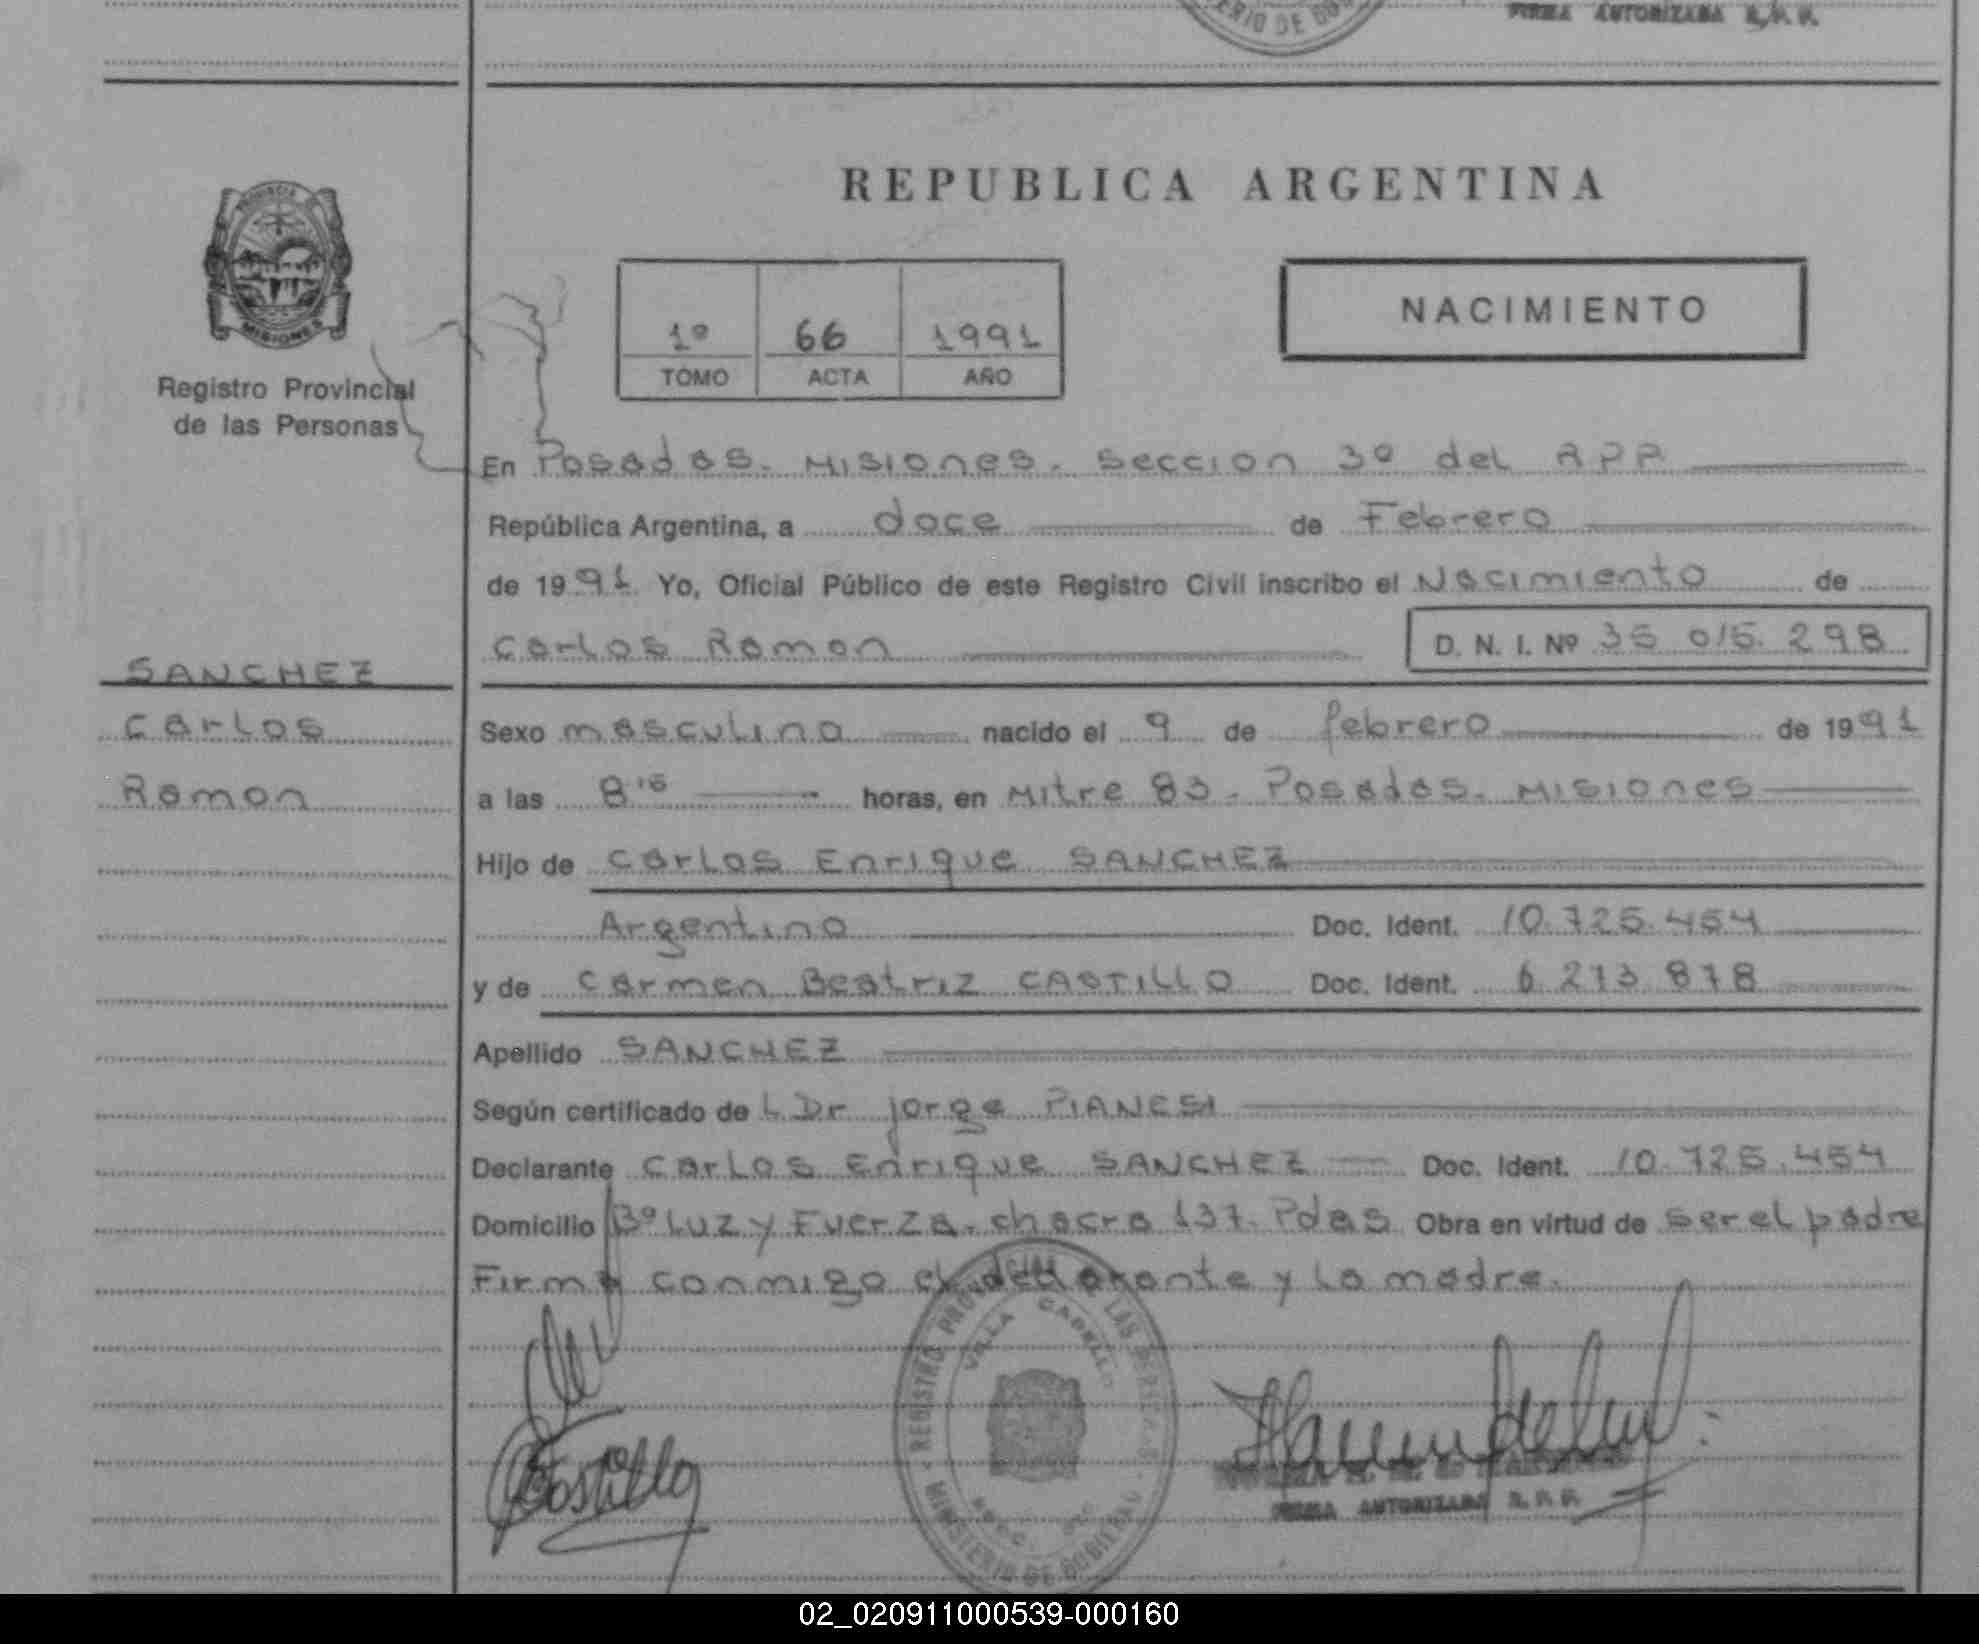 MINISTERIO DE GOB
FIRMA AUTORIZADA R.P.P.
PROVINCIA
MISIONES
Registro Provincial
de las Personas
REPUBLICA ARGENTINA
1º 66 1991
TOMO ACTA AÑO
NACIMIENTO
En Posadas. Misiones. Seccion 3º del RPP
República Argentina, a doce de Febrero
de 1991 Yo, Oficial Público de este Registro Civil inscribo el Nacimiento de
Carlos Ramon D. N. I. Nº 35 015. 298
SANCHEZ
Carlos
Ramon
Sexo masculino nacido el 9 de febrero de 1991
a las 8 15 horas, en Mitre 83. Posadas. Misiones
Hijo de Carlos Enrique SANCHEZ
Argentino Doc. Ident. 10.725.454
y de Carmen Beatriz CASTILLO Doc. Ident. 6 273 878
Apellido SANCHEZ
Según certificado de L Dr jorge PIANESI
Declarante Carlos Enrique SANCHEZ Doc. Ident. 10.725.454
Domicilio Bº Luz y Fuerza. chacra 137. Pdas Obra en virtud de ser el padre
Firma conmigo el declarante y la madre.
REGISTRO PROVINCIAL DE LAS PERSONAS
MINISTERIO DE GOBIERNO
VILLA CABELLO
Castillo
FIRMA AUTORIZADA R.P.P.
02_020911000539-000160